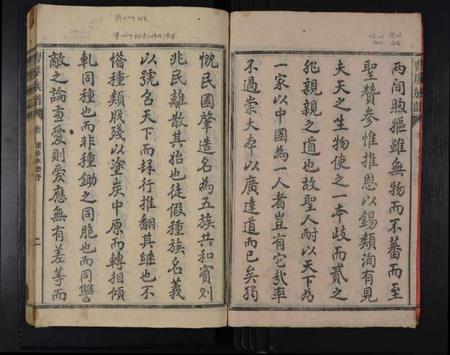 兩間煦嫗雖無物而不蕃而至
聖贊參惟推恩以錫類洵有見
夫天之生物使之一本歧而貳之
非親親之道也故聖人耐以天下為
一家以中國為一人者豈有它哉率
不過崇大本以廣達道而已矣獨
慨民國肇造名為五族共和實則
兆民離散其始也徒假種族名義
以號召天下而肆行推翻其繼也不
惜種類戕殘以塗炭中原而轉相傾
軋同種也而非種鋤之同胞也而同讐
敵之論壹愛則愛應無有差等而